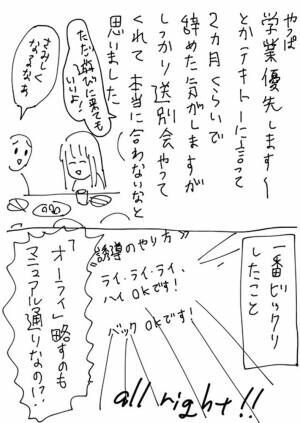 やっぱ
学業優先します〜
とかテキトーに言って
2ヵ月くらいで
辞めた気がしますが
しっかり送別会やって
くれて本当に合わないなと
思いました
ただ遊びに来ても
いいよ!
さみしく
なるなぁ
一番ビックリ
したこと
誘導のやり方》
ライ・ライ・ライ、
ハイOKです!
バックOKです!
「オーライ」略すのも
マニュアル通りなの!?
all right!!